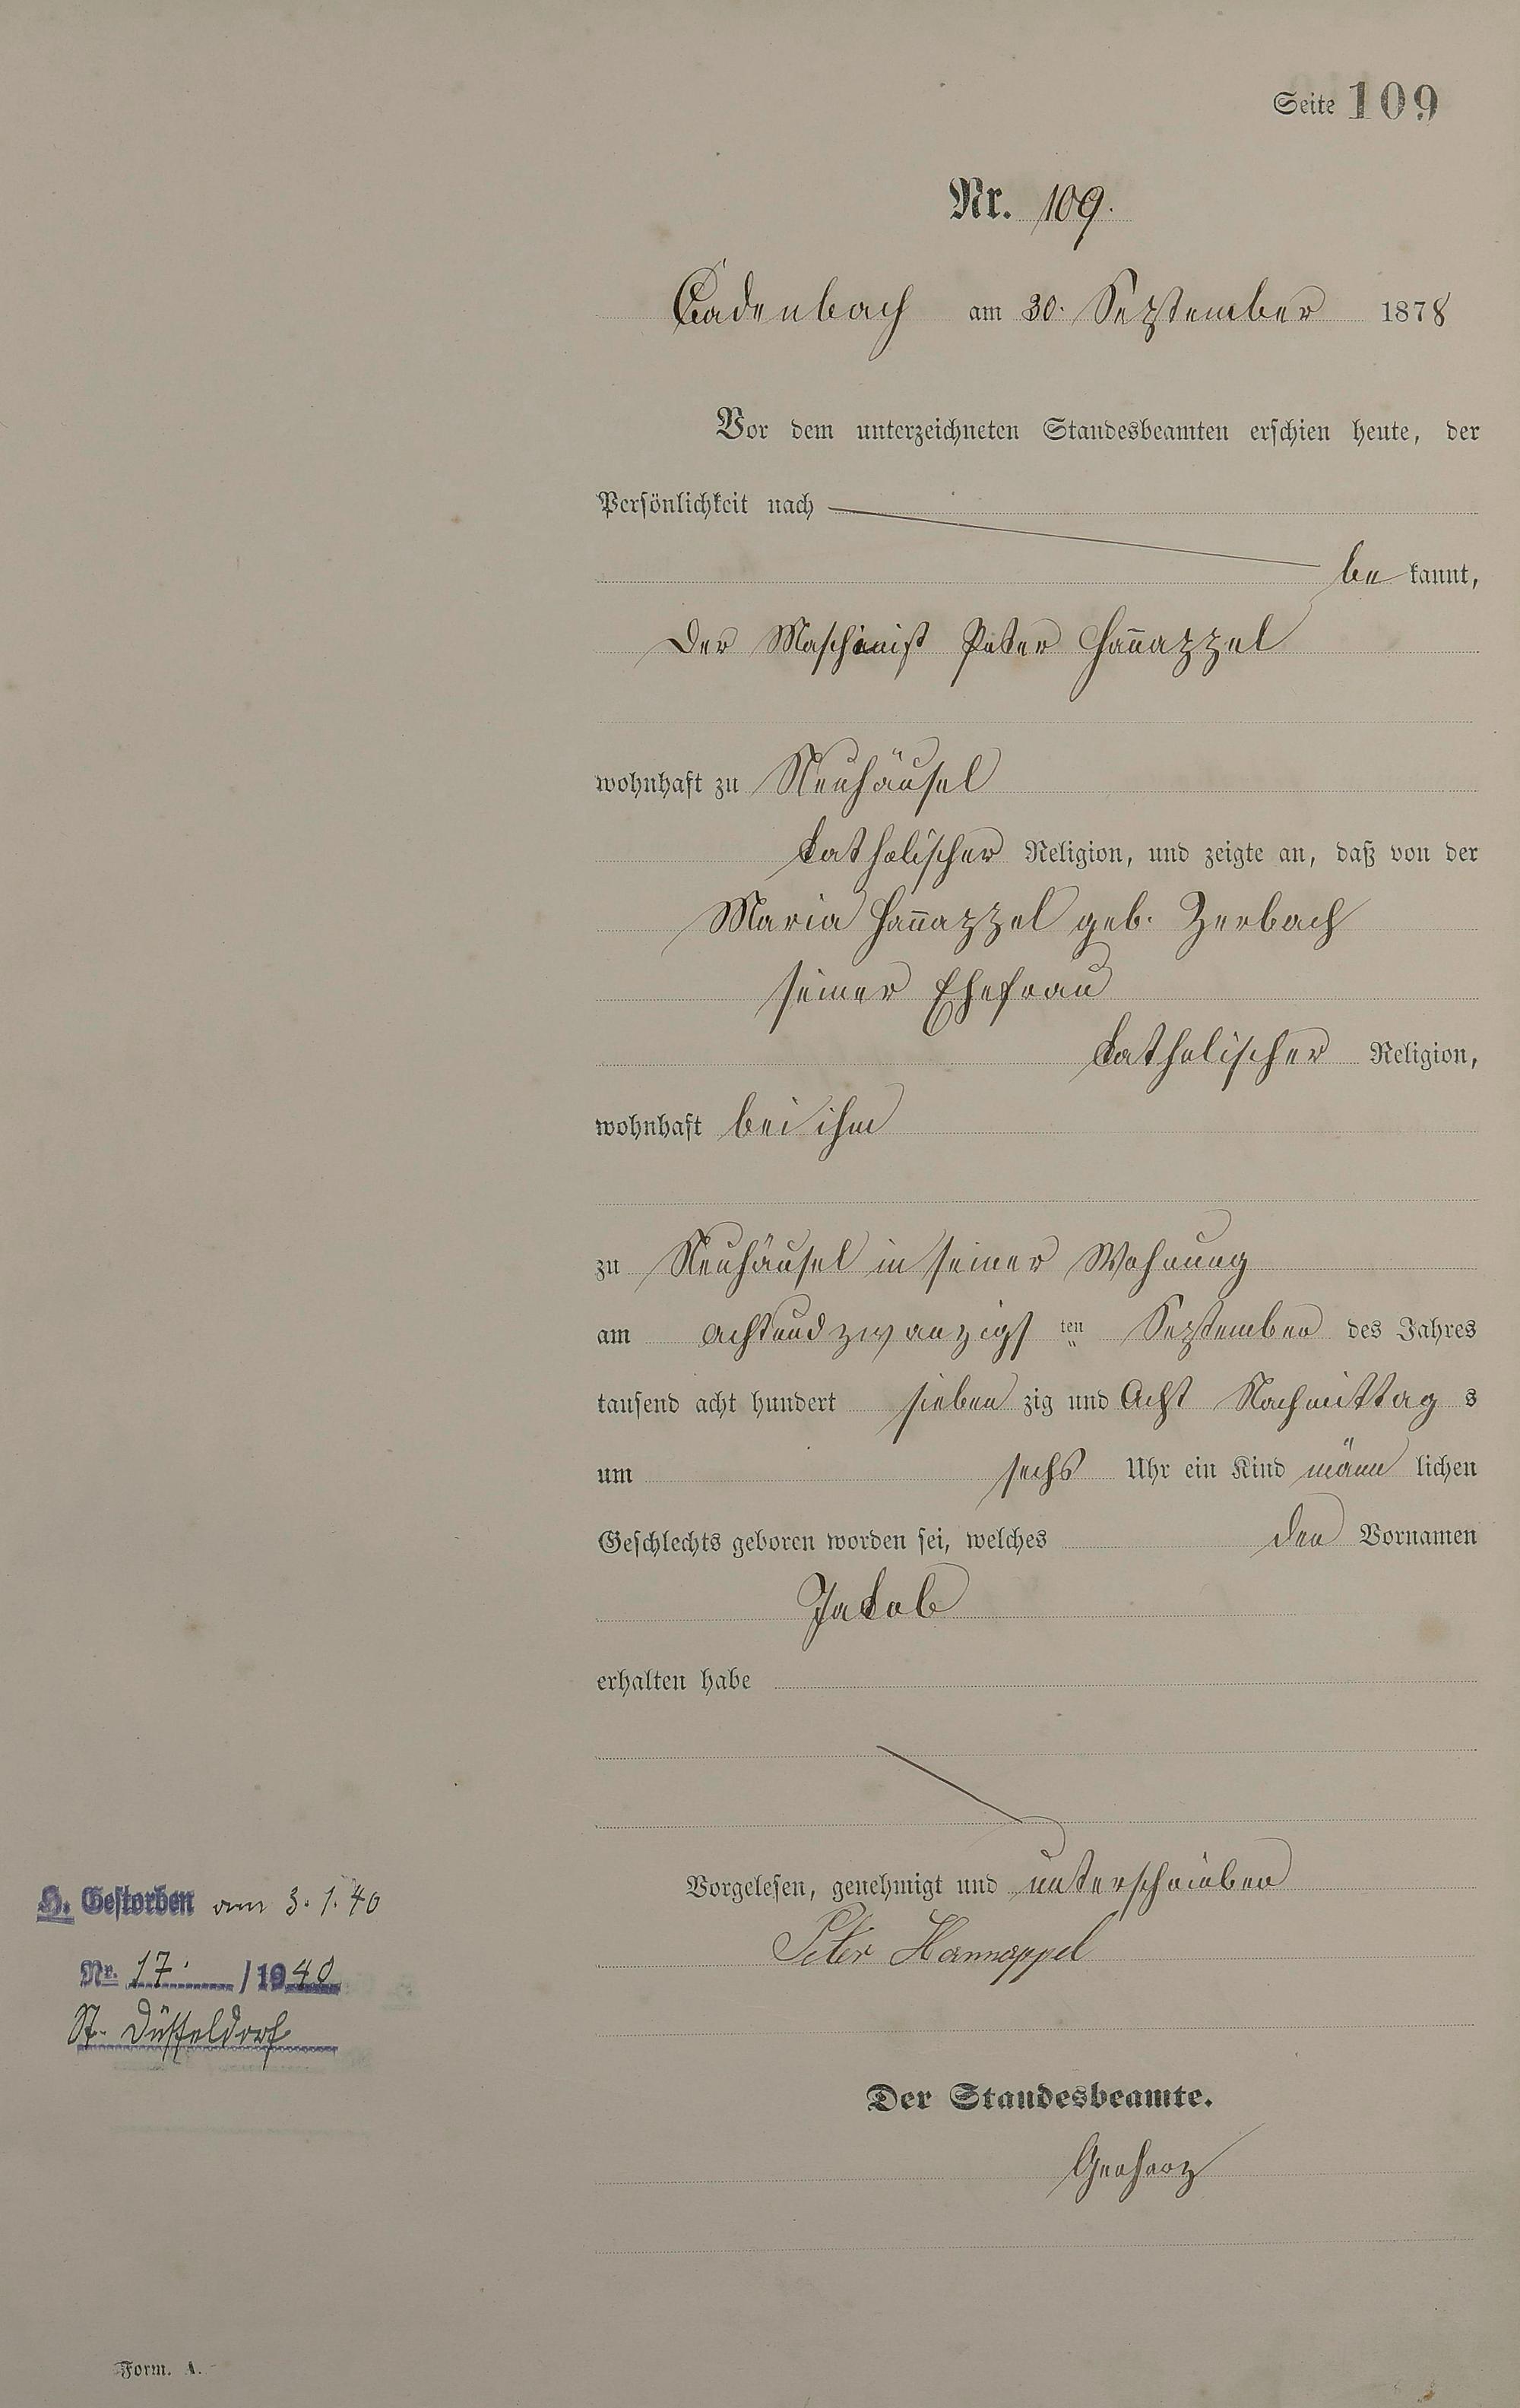 Seite 109
Nr. 109.
Cadenbach am 30. September 1878
Vor dem unterzeichneten Standesbeamten erschien heute, der
Persönlichkeit nach
be kannt,
Der Maschinist Peter Han̄appel
wohnhaft zu Neuhäusel
katholischer Religion, und zeigte an, daß von der
Maria Han̄appel geb. Zerbach
seiner Ehefrau
katholischer Religion,
wohnhaft bei ihm
zu Neuhäusel in seiner Wohnung
am achtundzwanzigs ten September des Jahres
tausend acht hundert sieben zig und Acht Nachmittag s
um sechs Uhr ein Kind männ lichen
Geschlechts geboren worden sei, welches den Vornamen
Jakob
erhalten habe
Vorgelesen, genehmigt und unterschrieben
Peter Hannappel
Der Standesbeamte.
Gerharz
H. Gestorben am 3.1.40
Nr. 17. /1940
St. Düsseldorf
Form. A.